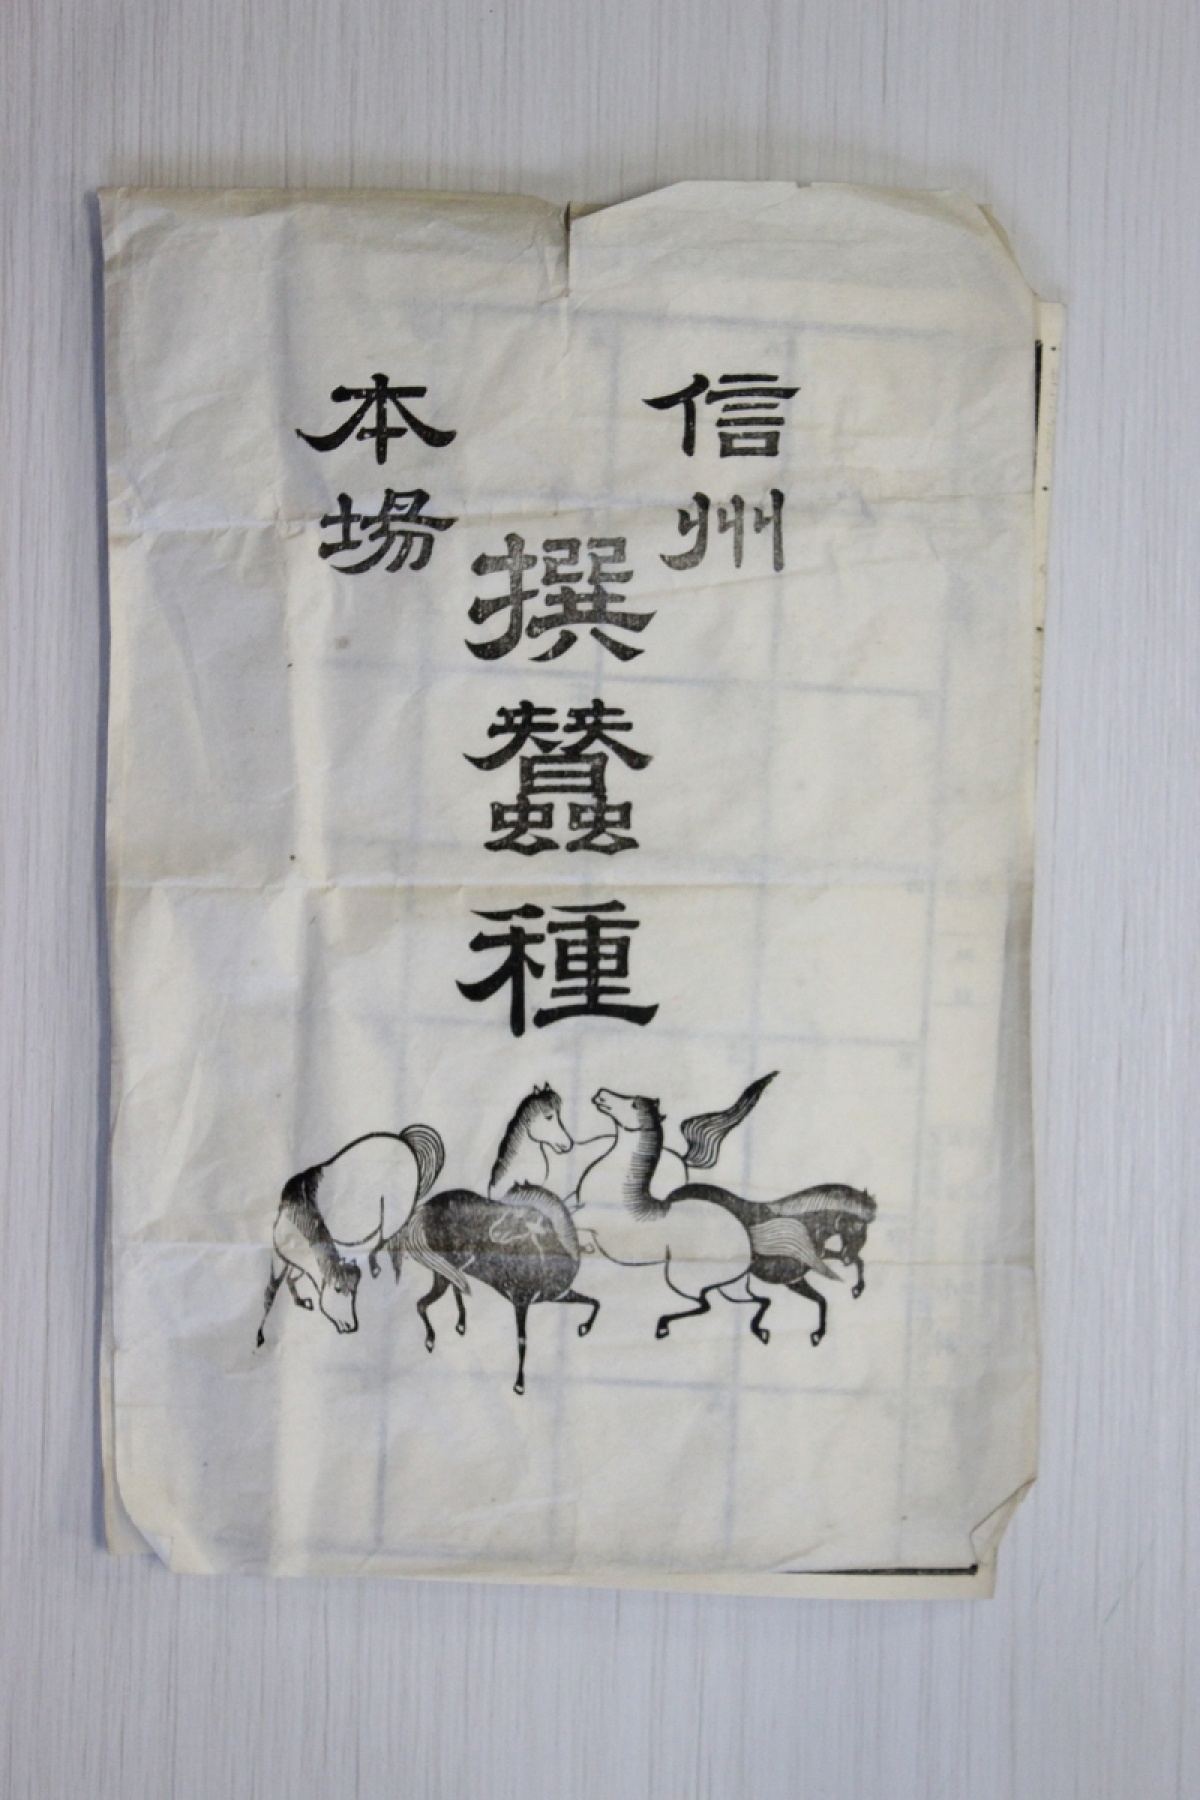 信州
撰蠶種
本場